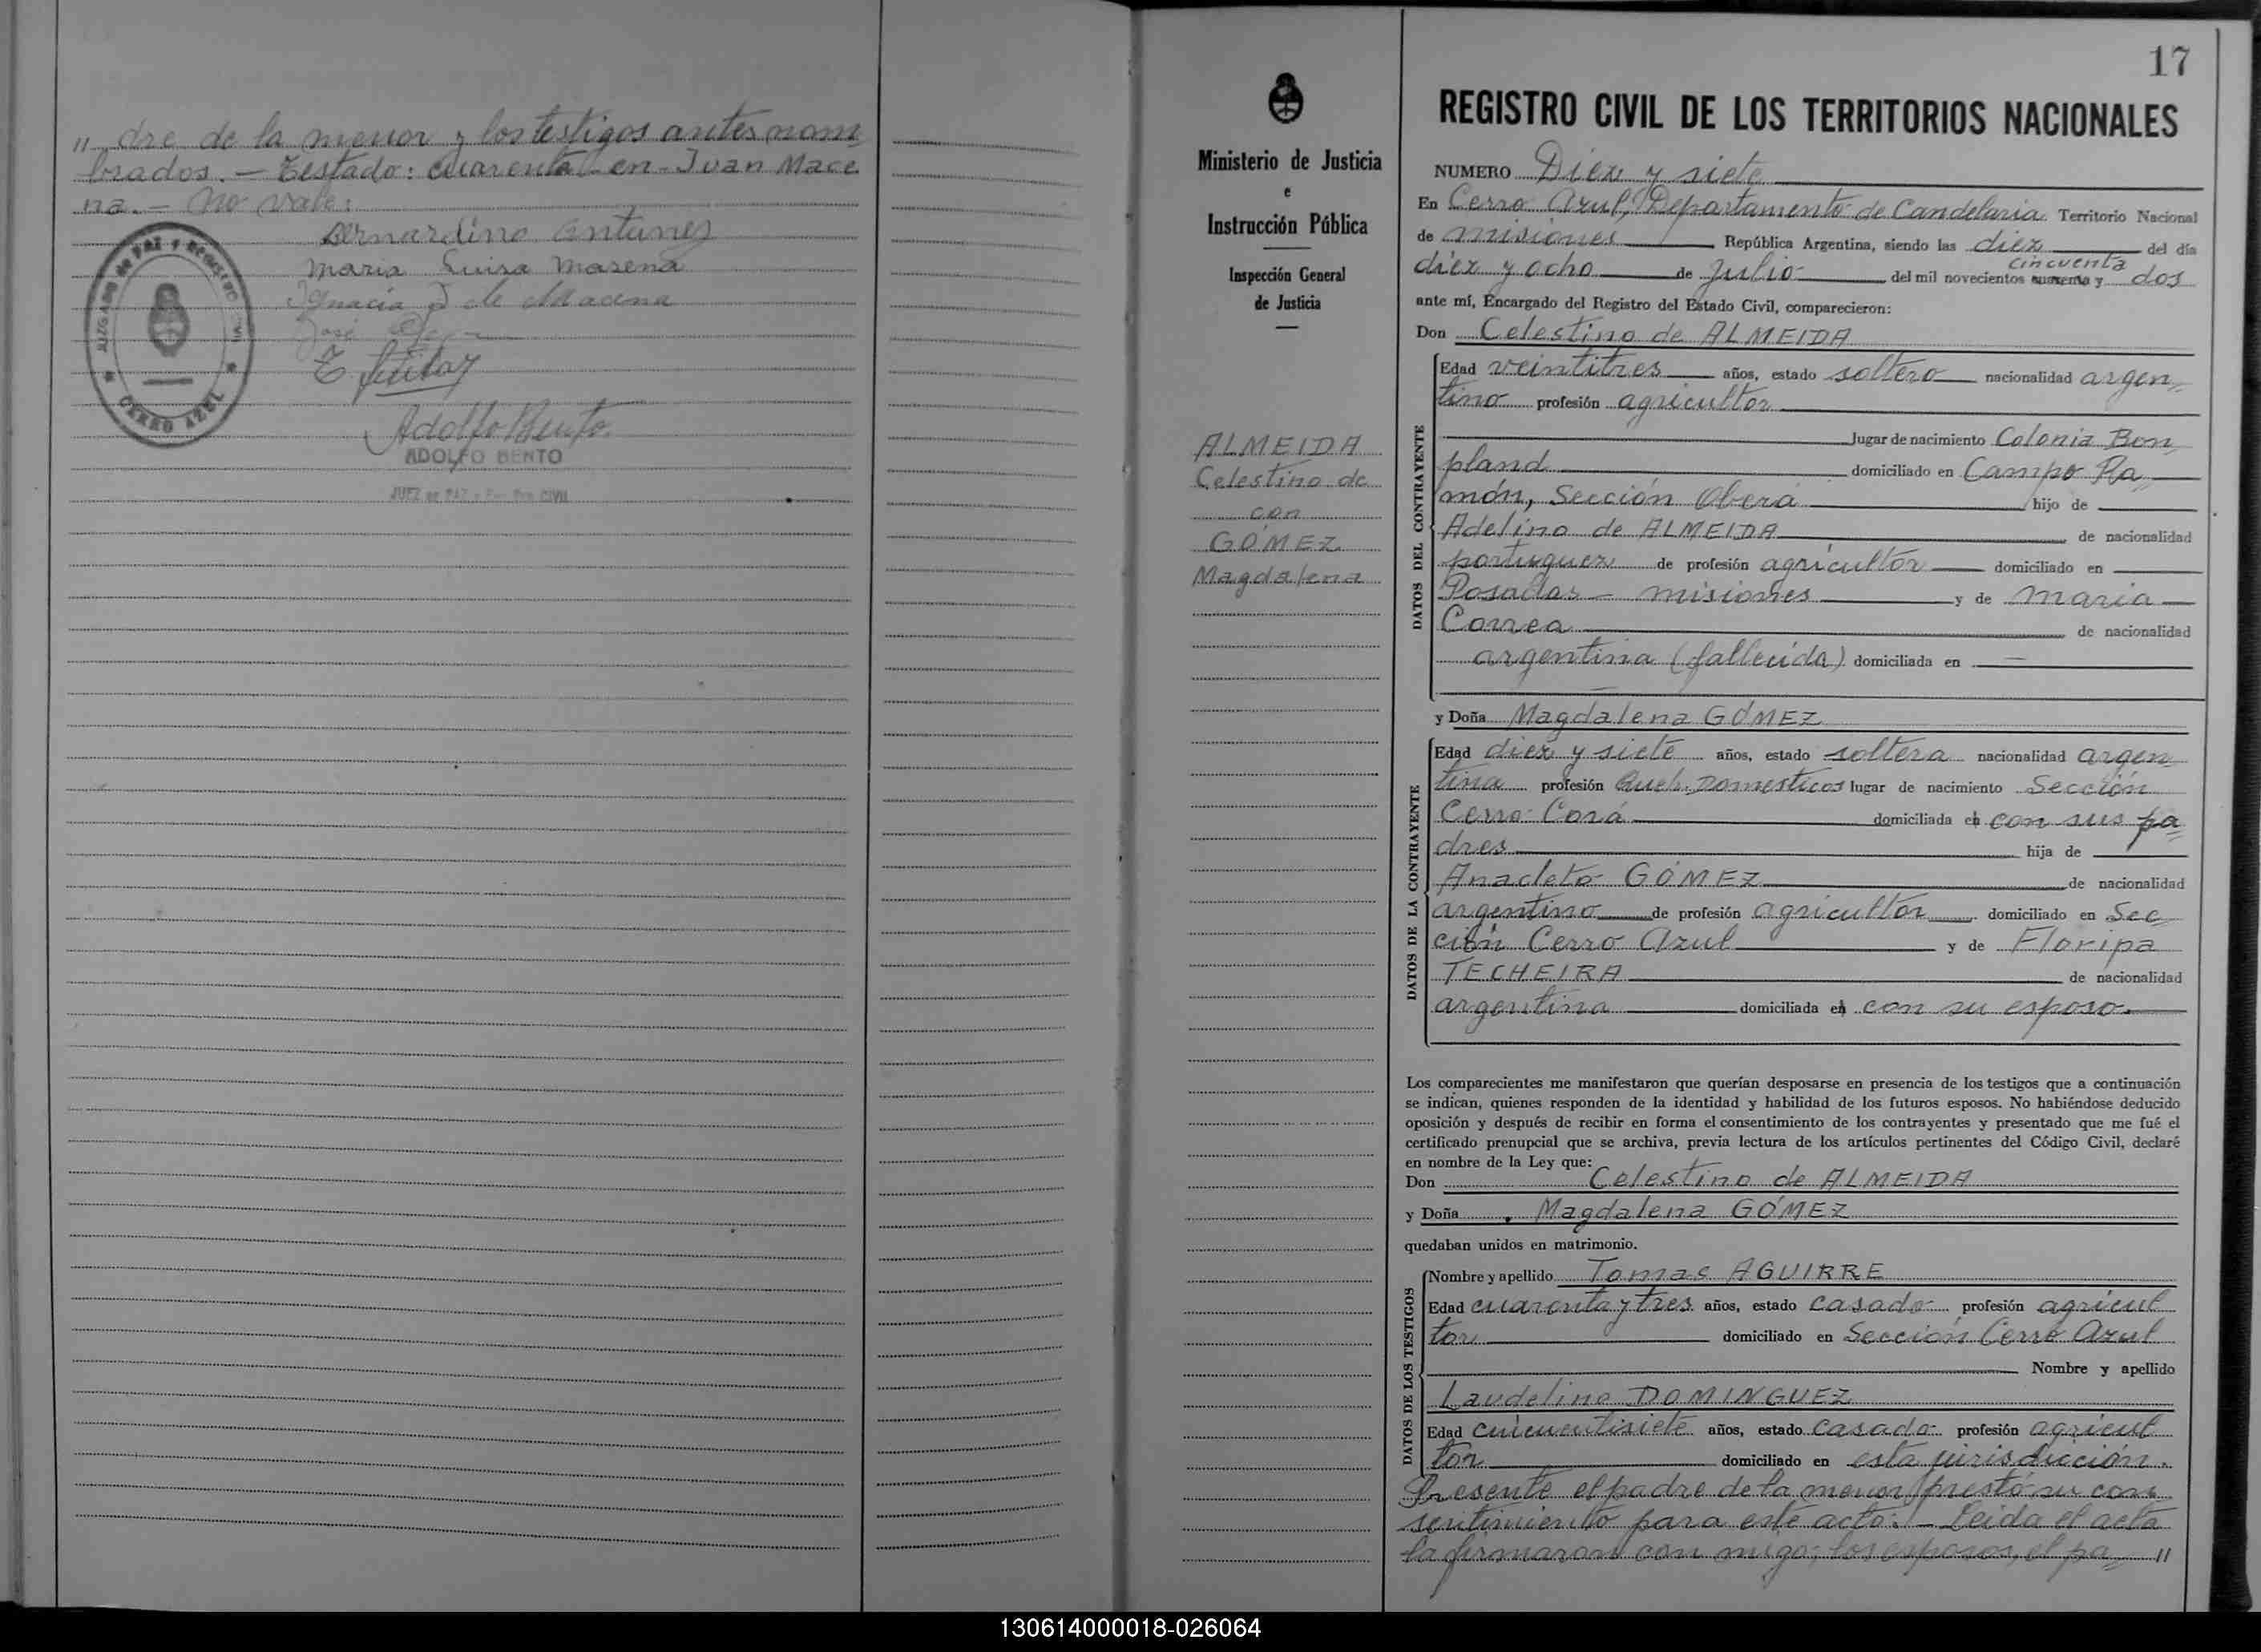 " dre de la menor y los testigos antes nom
brados. — Testado: cuarenta - en - Juan Mace
na. — No vale:
Bernardino Antunez
Maria Luisa Masena
Ignacia de Macena
José
JUZGADO DE PAZ Y REGISTRO CIVIL
CERRO AZUL
Adolfo Bento
ADOLFO BENTO
JUEZ DE PAZ CIVIL
17
Ministerio de Justicia
e
Instrucción Pública
Inspección General
de Justicia
ALMEIDA
Celestino de
con
GÓMEZ
Magdalena
REGISTRO CIVIL DE LOS TERRITORIOS NACIONALES
NUMERO Diez y siete
En Cerro Azul, Departamento de Candelaria Territorio Nacional
de Misiones República Argentina, siendo las diez del día
cincuenta
diez y ocho de Julio del mil novecientos cuarenta y dos
ante mí, Encargado del Registro del Estado Civil, comparecieron:
Don Celestino de ALMEIDA
DATOS DEL CONTRAYENTE
Edad veintitres años, estado soltero nacionalidad argen
tino profesión agricultor
lugar de nacimiento Colonia Bon
pland domiciliado en Campo Ra
món, Sección Oberá hijo de
Adelino de ALMEIDA de nacionalidad
portuguez de profesión agricultor domiciliado en
Posadas — Misiones y de Maria
Correa de nacionalidad
argentina (fallecida) domiciliada en —
y Doña Magdalena GÓMEZ
DATOS DE LA CONTRAYENTE
Edad diez y siete años, estado soltera nacionalidad argen
tina profesión Queh. Domesticos lugar de nacimiento Sección
Cerro Corá domiciliada en con sus pa
dres hija de
Anacleto GÓMEZ de nacionalidad
argentino de profesión agricultor domiciliado en Sec
ción Cerro Azul y de Floripa
TECHEIRA de nacionalidad
argentina domiciliada en con su esposo.
Los comparecientes me manifestaron que querían desposarse en presencia de los testigos que a continuación
se indican, quienes responden de la identidad y habilidad de los futuros esposos. No habiéndose deducido
oposición y después de recibir en forma el consentimiento de los contrayentes y presentado que me fué el
certificado prenupcial que se archiva, previa lectura de los artículos pertinentes del Código Civil, declaré
en nombre de la Ley que:
Don Celestino de ALMEIDA
y Doña Magdalena GÓMEZ
quedaban unidos en matrimonio.
DATOS DE LOS TESTIGOS
Nombre y apellido Tomas AGUIRRE
Edad cuarenta y tres años, estado casado profesión agricul
tor domiciliado en Sección Cerro Azul
Nombre y apellido
Laudelino DOMINGUEZ
Edad cincuentisiete años, estado casado profesión agricul
tor domiciliado en esta jurisdicción.
Presente el padre de la menor prestó su con
sentimiento para este acto: — Leida el acta
la firmaron con migo, los esposos, el pa "
130614000018-026064